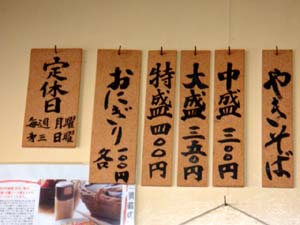 やきそば
中盛 三〇〇円
大盛 三五〇円
特盛 四〇〇円
おにぎり 各 一〇〇円
定休日
毎週 月曜
第三 日曜